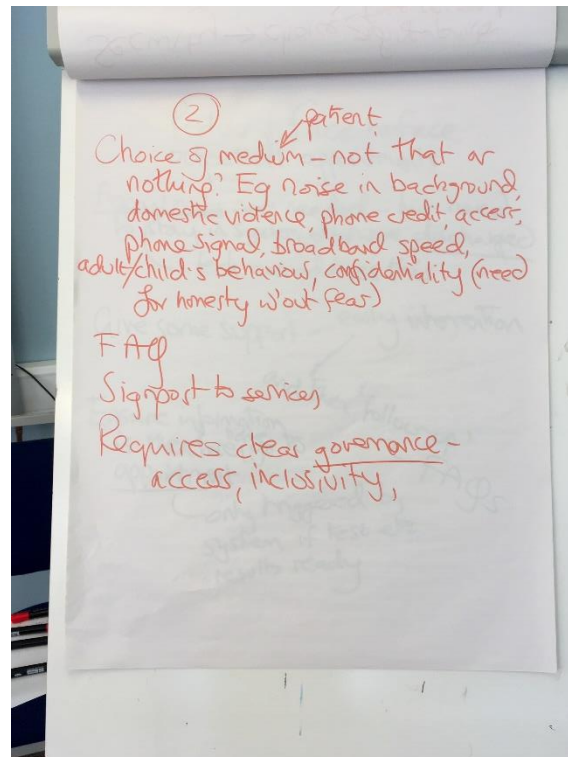 2
patient
Choice of medium - not that or
nothing? Eg noise in background,
domestic violence, phone credit, access,
phone signal, broadband speed,
adult/child's behaviour, confidentiality (need
for honesty w'out fear)
FAQ
Signpost to services
Requires clear governance -
access, inclusivity,